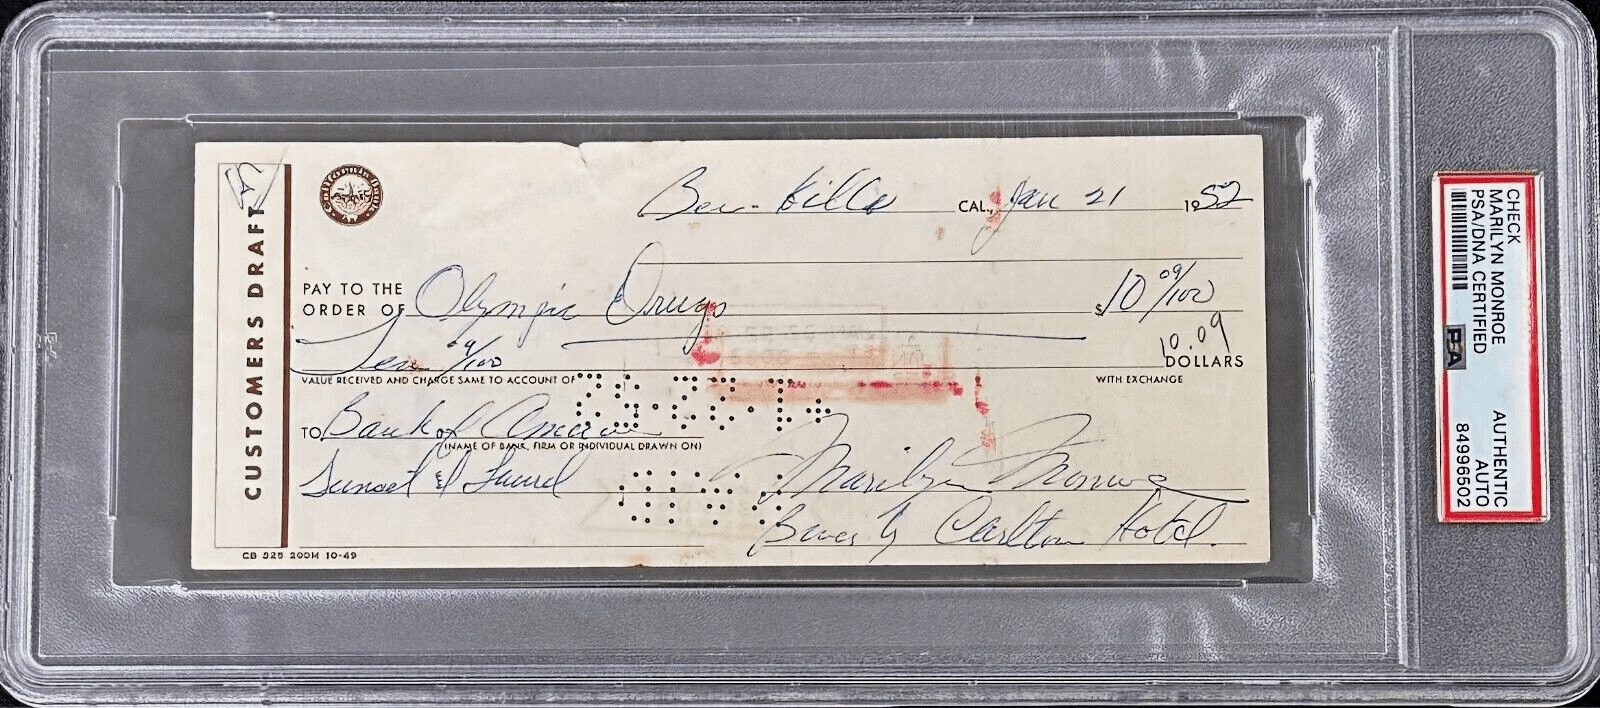 CUSTOMERS DRAFT
California Bank
Bev. Hills CAL., Jan 21 1952
PAY TO THE
ORDER OF Olympic Drugs $10 09/100
Ten 09/100 10.09
DOLLARS
VALUE RECEIVED AND CHARGE SAME TO ACCOUNT OF WITH EXCHANGE
TO Bank of America
(NAME OF BANK, FIRM OR INDIVIDUAL DRAWN ON)
Sunset & Laurel Marilyn Monroe
Beverly Carlton Hotel.
CB 525 200M 10-49
CHECK
MARILYN MONROE
PSA/DNA CERTIFIED
PSA
AUTHENTIC
AUTO
84996502